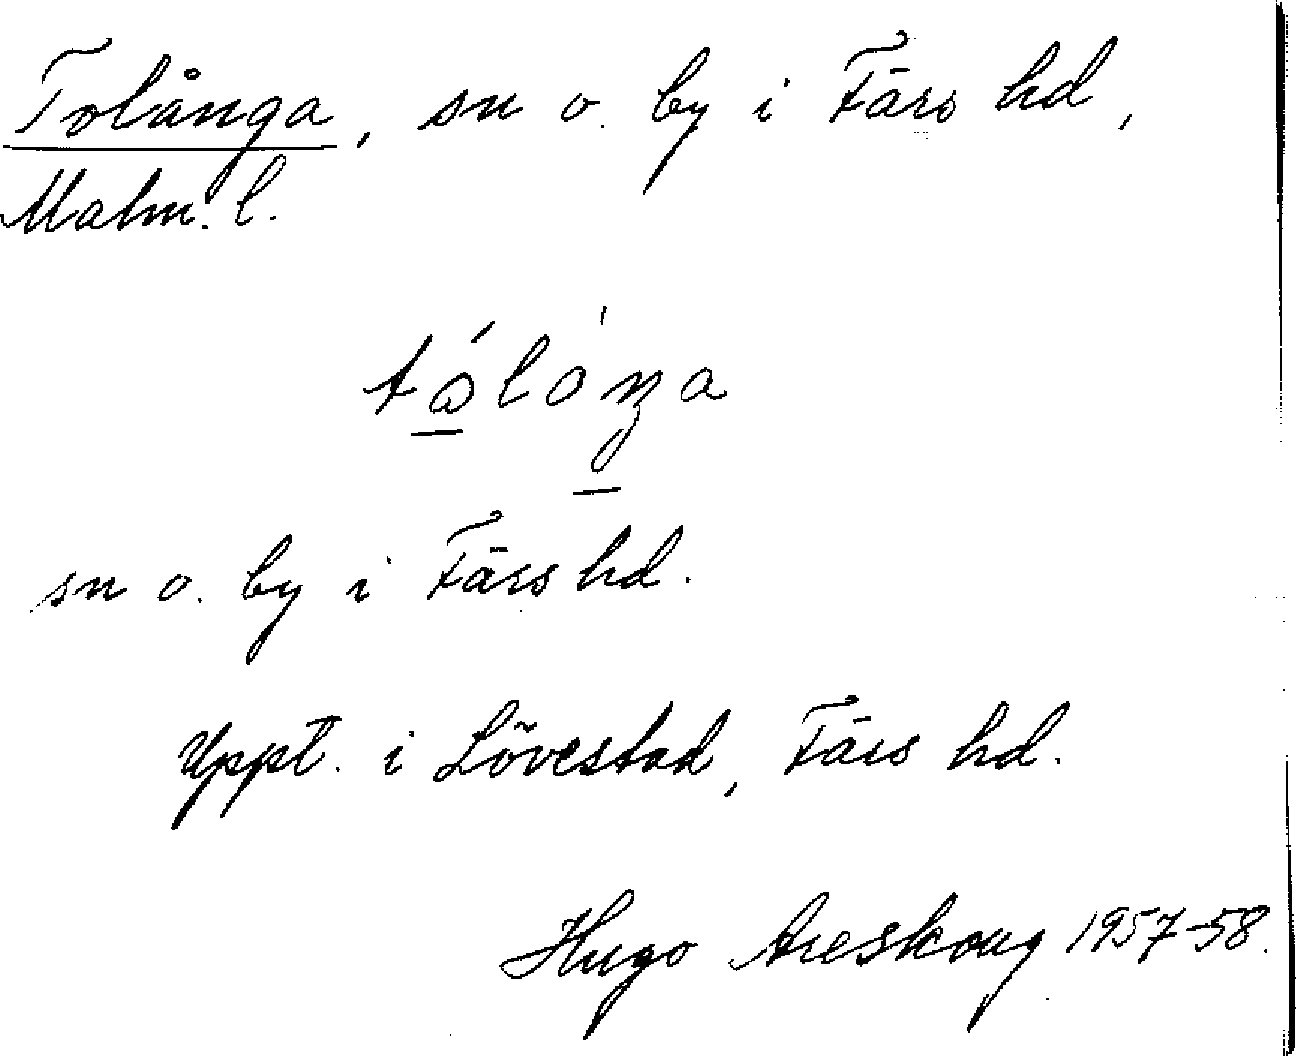 Tolånga, sn o. by i Färs hd,
Malm. l.
tɷ́lóŋa
sn o. by i Färs hd.
Uppt. i Lövestad, Färs hd.
Hugo Areskoug 1957-58.